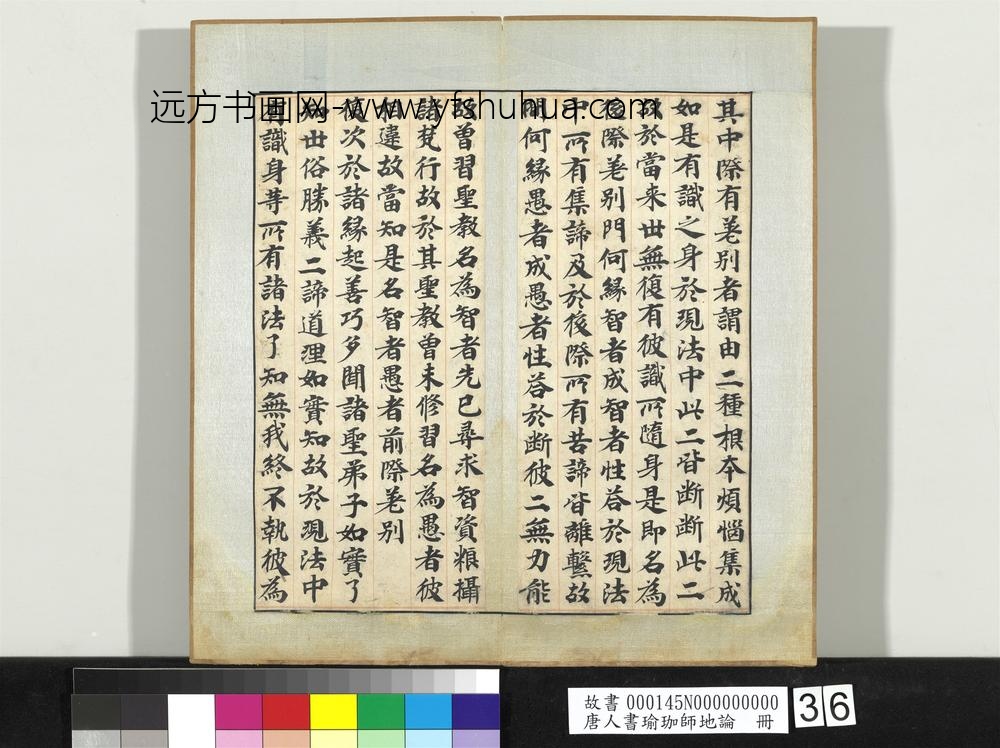 远方书画网-www.yfshuhua.com
其中際有差别者謂由二種根本煩惱集成
如是有識之身於現法中此二皆断断此二
故於當来世無復有彼識所隨身是即名為
後際差别門何緣智者成智者性荅於現法
中所有集諦及於後際所有苦諦皆離繫故
何緣愚者成愚者性荅於断彼二無力能
故曾習聖教名為智者先已尋求智資粮攝
諸梵行故於其聖教曾未修習名為愚者彼
相違故當知是名智者愚者前際差别
復次於諸緣起善巧多聞諸聖弟子如實了
知世俗勝義二諦道理如實知故於現法中
有識身等所有諸法了知無我終不執彼為
故書 000145N000000000
唐人書瑜珈師地論 冊
36